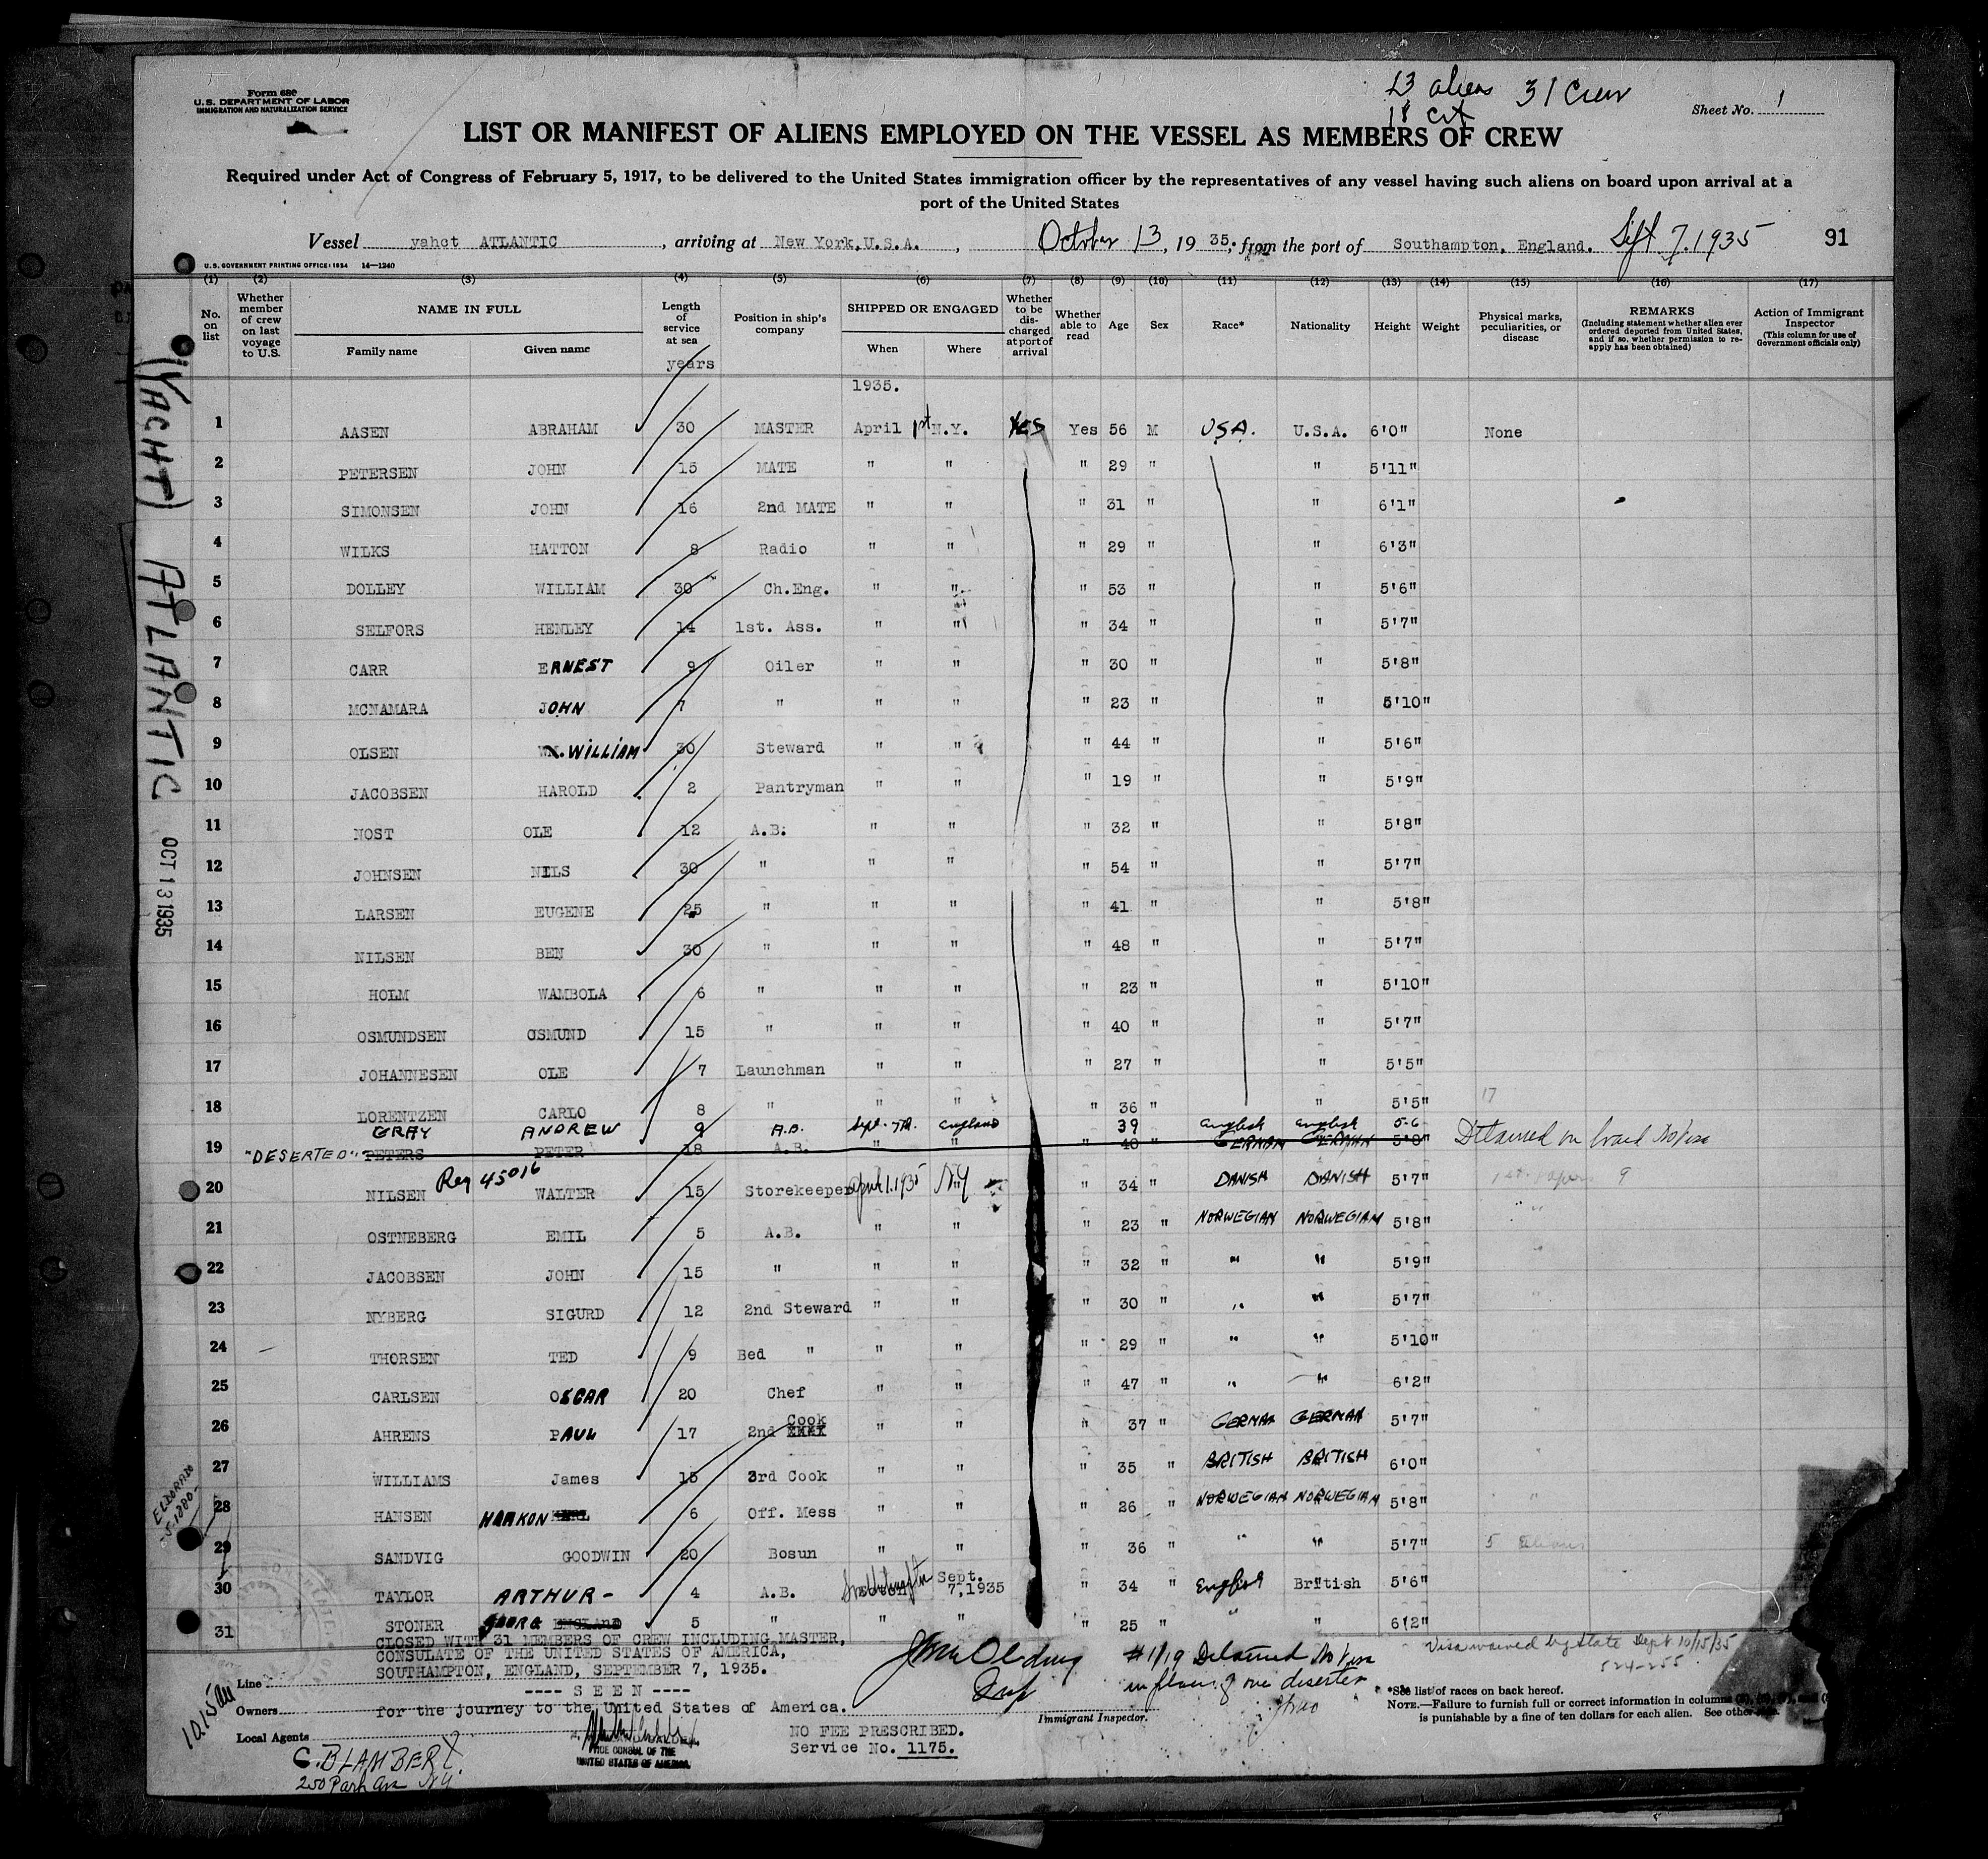 Form 680
U.S. DEPARTMENT OF LABOR
IMMIGRATION AND NATURALIZATION SERVICE
13 aliens 31 Crew
18 cit
Sheet No. 1
LIST OR MANIFEST OF ALIENS EMPLOYED ON THE VESSEL AS MEMBERS OF CREW
Required under Act of Congress of February 5, 1917, to be delivered to the United States immigration officer by the representatives of any vessel having such aliens on board upon arrival at a
port of the United States
Vessel yahct ATLANTIC, arriving at New York,U.S.A., October 13, 19 35, from the port of Southampton, England. Sept 7.1935 91
U.S. GOVERNMENT PRINTING OFFICE: 1934 14—1240
(1) (2) (3) (4) (5) (6) (7) (8) (9) (10) (11) (12) (13) (14) (15) (16) (17)
No. on list
Whether member of crew on last voyage to U.S.
NAME IN FULL
Family name Given name
Length of service at sea
years
Position in ship's company
SHIPPED OR ENGAGED
When Where
Whether to be discharged at port of arrival
Whether able to read
Age Sex Race* Nationality Height Weight
Physical marks, peculiarities, or disease
REMARKS
(Including statement whether alien ever ordered deported from United States, and if so, whether permission to reapply has been obtained)
Action of Immigrant Inspector
(This column for use of Government officials only)
1935.
1 AASEN ABRAHAM 30 MASTER April 1st N.Y. YES Yes 56 M U.S.A. U.S.A. 6'0" None
2 PETERSEN JOHN 15 MATE " " " 29 " " 5'11"
3 SIMONSEN JOHN 16 2nd MATE " " " 31 " " 6'1"
4 WILKS HATTON 8 Radio " " " 29 " " 6'3"
5 DOLLEY WILLIAM 30 Ch.Eng. " " " 53 " " 5'6"
6 SELFORS HENLEY 14 1st. Ass. " " " 34 " " 5'7"
7 CARR ERNEST 9 Oiler " " " 30 " " 5'8"
8 MCNAMARA JOHN 7 " " " " 23 " " 5'10"
9 OLSEN WILLIAM 30 Steward " " " 44 " " 5'6"
10 JACOBSEN HAROLD 2 Pantryman " " " 19 " " 5'9"
11 NOST OLE 12 A.B: " " " 32 " " 5'8"
12 JOHNSEN NILS 30 " " " " 54 " " 5'7"
13 LARSEN EUGENE 25 " " " " 41 " " 5'8"
14 NILSEN BEN 30 " " " " 48 " " 5'7"
15 HOLM WAMBOLA 6 " " " " 23 " " 5'10"
16 OSMUNDSEN OSMUND 15 " " " " 40 " " 5'7"
17 JOHANNESEN OLE 7 Launchman " " " 27 " " 5'5"
18 LORENTZEN CARLO 8 " " " " 36 " " 5'5" 17
GRAY ANDREW 9 A.B. Sept. 7th. England 39 English English 5-6 Detained on board No Visa
19 "DESERTED" PETERS PETER 18 A.B. " " " 40 " GERMAN GERMAN 5'8"
Reg 45016
20 NILSEN WALTER 15 Storekeeper April 1.1935 NY " 34 " DANISH DANISH 5'7" 1st papers 9
21 OSTNEBERG EMIL 5 A.B. " " " 23 " NORWEGIAN NORWEGIAN 5'8" " "
22 JACOBSEN JOHN 15 " " " " 32 " " " 5'9"
23 NYBERG SIGURD 12 2nd Steward " " " 30 " " " 5'7"
24 THORSEN TED 9 Bed " " " " 29 " " " 5'10"
25 CARLSEN OSCAR 20 Chef " " " 47 " " " 6'2"
26 AHRENS PAUL 17 2nd Cook " " " 37 " GERMAN GERMAN 5'7"
27 WILLIAMS James 15 3rd Cook " " " 35 " BRITISH BRITISH 6'0"
28 HANSEN HARKON 6 Off. Mess " " " 26 " NORWEGIAN NORWEGIAN 5'8"
29 SANDVIG GOODWIN 20 Bosun " " " 36 " " " 5'7" 5 aliens
30 TAYLOR ARTHUR- 4 A.B. Southampton Sept. 7,1935 " 34 " English British 5'6"
31 STONER GEORG ENGLAND 5 " " " " 25 " " " 6'2"
CLOSED WITH 31 MEMBERS OF CREW INCLUDING MASTER,
CONSULATE OF THE UNITED STATES OF AMERICA,
SOUTHAMPTON, ENGLAND, SEPTEMBER 7, 1935.
---- S E E N ----
for the journey to the United States of America.
Line
Owners
Local Agents
C. B LAMBERT.
250 Park Ave NY
VICE CONSUL OF THE
UNITED STATES OF AMERICA
NO FEE PRESCRIBED.
Service No. 1175.
Insp
Immigrant Inspector.
#1/19 Detained No Visa
in place of one deserter
Visa waived by State Dept 10/15/35
*See list of races on back hereof.
NOTE.—Failure to furnish full or correct information in columns
is punishable by a fine of ten dollars for each alien. See other
(YACHT) ATLANTIC OCT 13 1935
ELDORADO
5-1280-
10.15 am